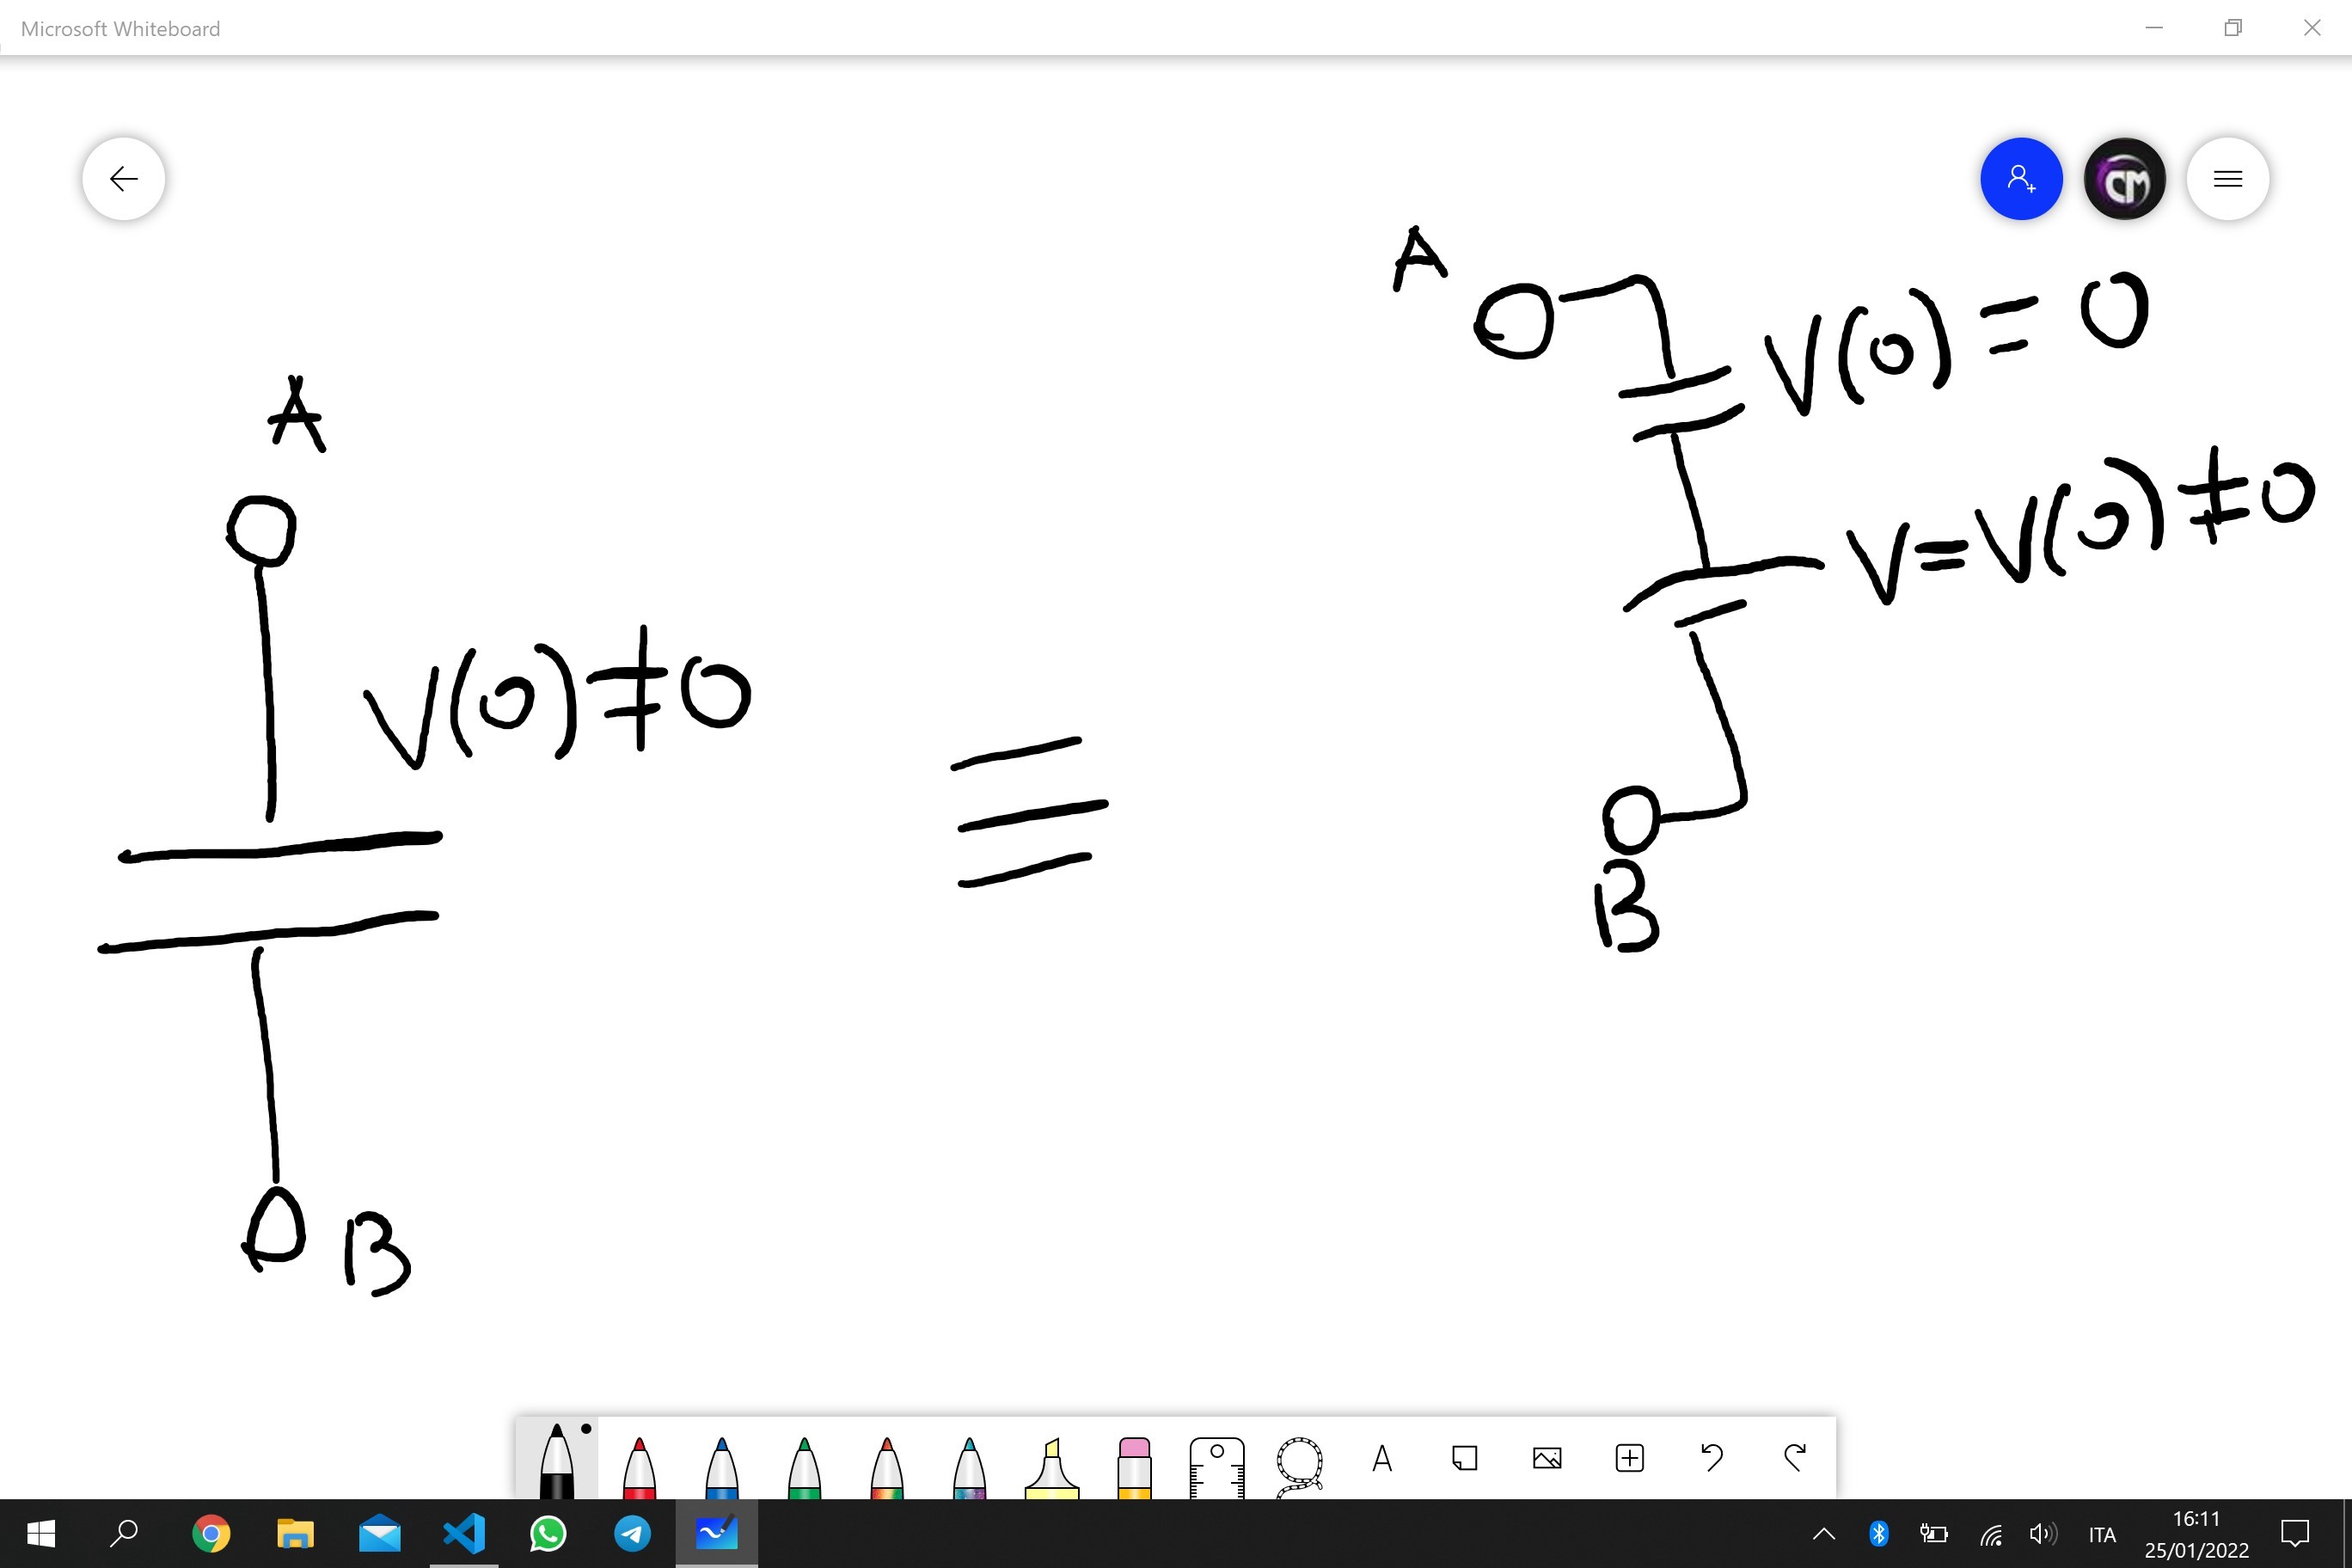 Microsoft Whiteboard
CM
A
V(0) = 0
A
V=V(0)≠0
V(0)≠0
B
B
A
ITA
16:11
25/01/2022